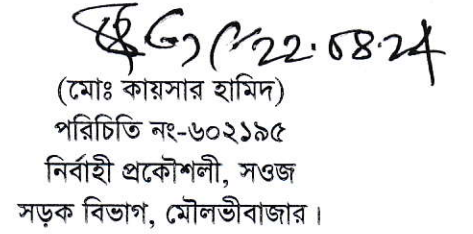 22.08.24
(মোঃ কায়সার হামিদ)
পরিচিতি নং-৬০২১৯৫
নির্বাহী প্রকৌশলী, সওজ
সড়ক বিভাগ, মৌলভীবাজার।